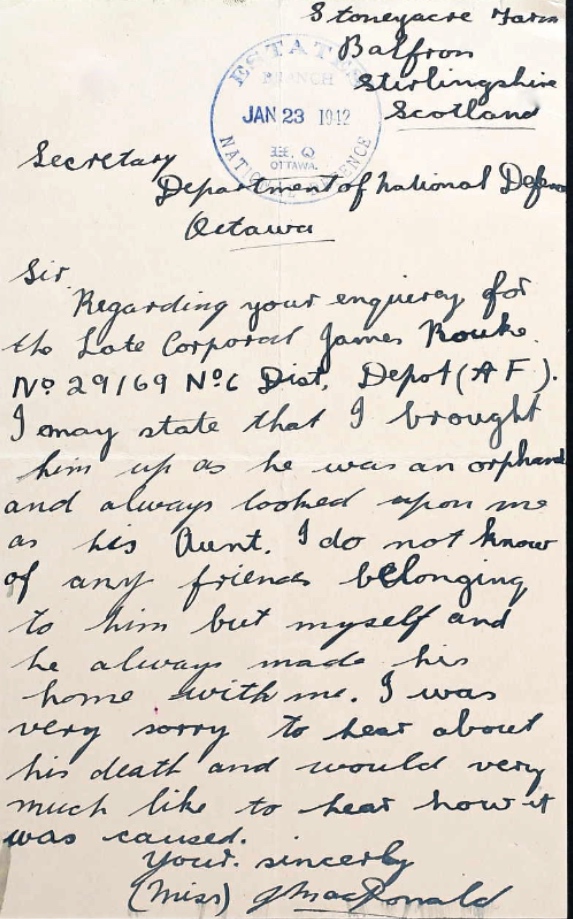 Stoneyacre Farm
Balfron
Stirlingshire
Scotland
ESTATES
BRANCH
JAN 23 1942
H. Q
OTTAWA.
NATIONAL DEFENCE
Secretary
Department of National Defence
Ottawa
Sir
Regarding your enquirey for
the Late Corporal James Rouke.
No 29169 No 6 Dist. Depot (A F).
I may state that I brought
him up as he was an orphand
and always looked upon me
as his Aunt. I do not know
of any friends belonging
to him but myself and
he always made his
home with me. I was
very sorry to hear about
his death and would very
much like to hear how it
was caused.
Your. sincerly
(Miss) J MacDonald